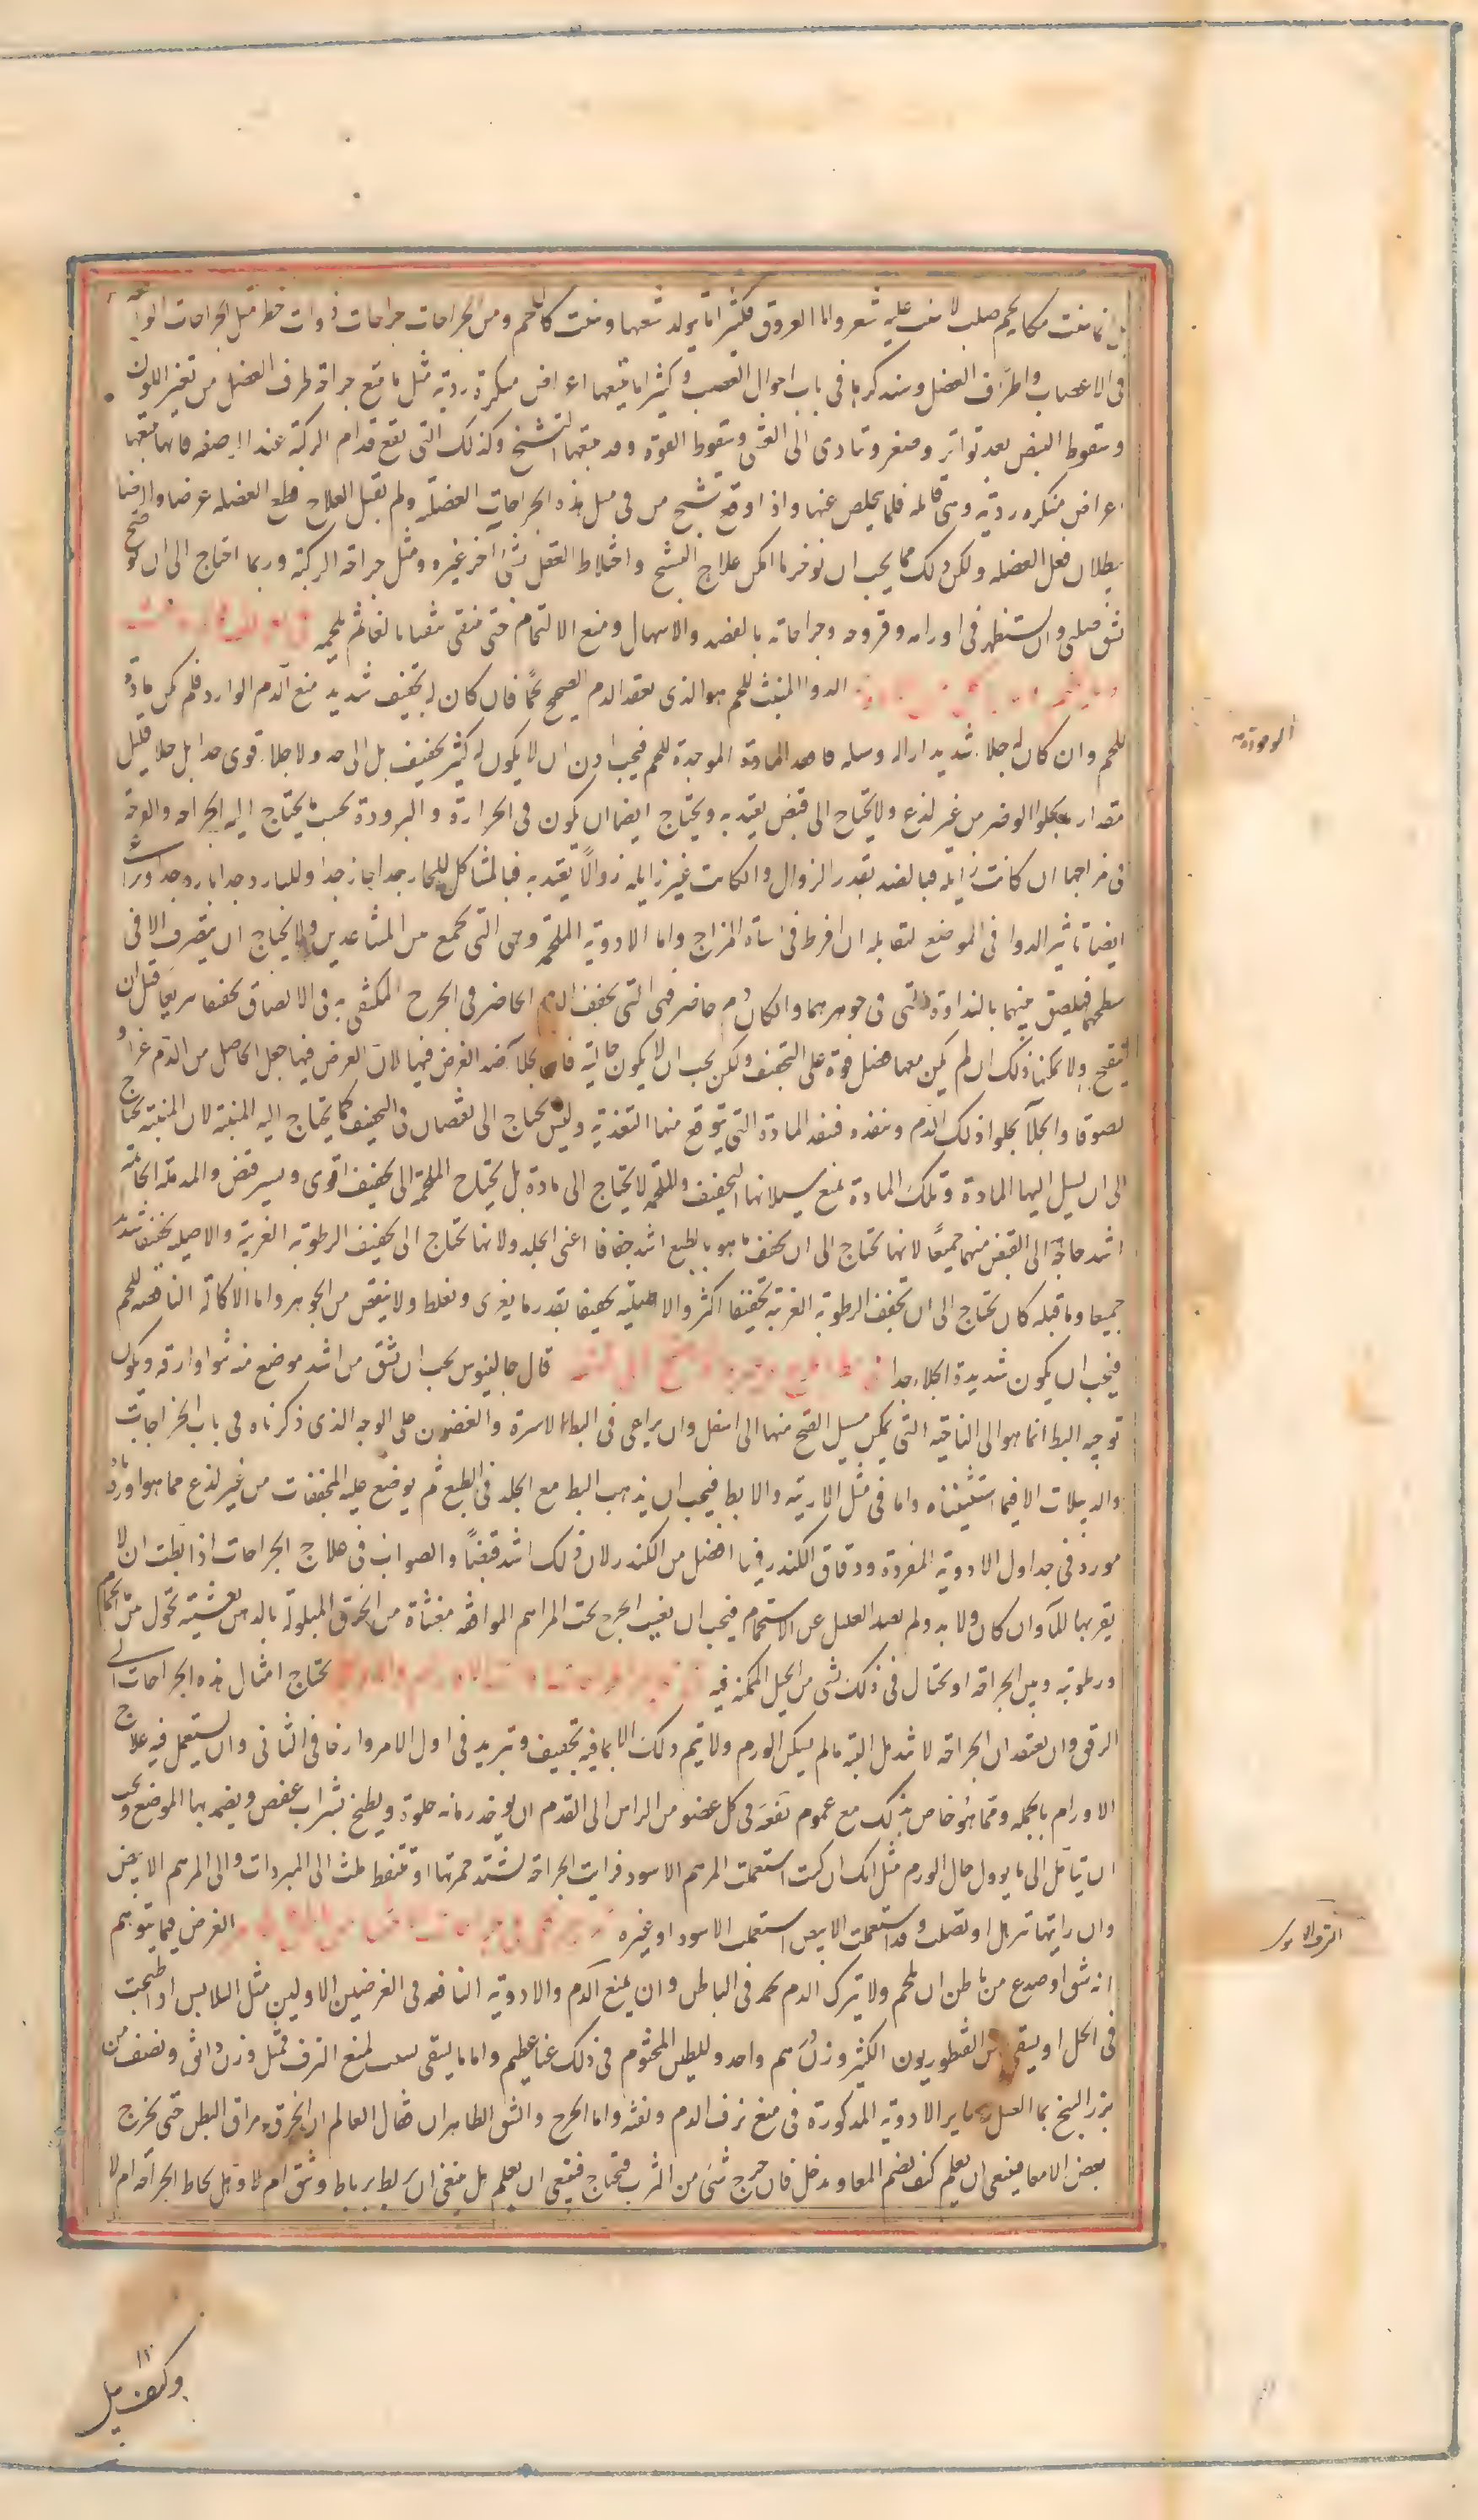 بل انما ينبت مكانه لحم صلب لا ينبت عليه شعر واما العروق فكثيرا ما يولد شعبها وينبت كاللحم ومن الجراحات جراحات ذوات خطر مثل الجراحات الواقعة
في الاعصاب واطراف العضل وسنذكرها في باب احوال العصب وكثيرا ما يتبعها اعراض منكرة ردية مثل ما يتبع جراحة طرف العضل من تغير اللون
وسقوط النبض بعد تواتر وصغر وتادى الى الغشى وسقوط القوة وقد يتبعها التشنج وكذلك التى تقع قدام الركبة عند الرصفه فانها يتبعها
اعراض منكره ردية وهى قاتله قلما يخلص عنها واذا وقع تشنج من فى مثل هذه الجراحات العضلية ولم يقبل العلاج قطع العضله عرضا والرضا
ببطلان فعل العضله ولكن ذلك مما يجب ان نوخره ما امكن علاج التشنج واختلاط العقل بشئ آخر غيره ومثل جراحة الركبة وربما احتاج الى ان توضح
بشق صليبى وان يستظهر فى اورامه وقروحه وجراحاته بالفصد والاسهال ومنع الالتحام حتى تنقى تنقيا بالغا ثم يلحم
الدوا المنبت للحم هو الذى يعقد الدم الصحيح لحمًا فان كان له تجفيف شديد منع الدم الوارد فلم يكن مادة
للحم وان كان له جلا شديد ازاله وسيله فاعدم المادة الموجدة للحم فيجب اذن ان لا يكون له كثير تجفيف بل الى حد ولا جلا قوى جدا بل جلا قليل
مقدار ما يجلوا الوضر من غير لذع ولا يحتاج الى قبض يعتد به ويحتاج ايضا ان يكون فى الحرارة والبرودة بحسب ما يحتاج اليه الجراحه والقرحة
فى مزاجها ان كانت زايله فبالضد بقدر الزوال وان كانت غير زايله زوالًا يعتد به فبالمشاكل للحار جدا حار جدا وللبارد جدا بارد جدا ويراعى
ايضا تاثير الدوا فى الموضع لتقابله ان افرط فى اساة المزاج واما الادوية الملحمة وهى التى تجمع من المتباعدين ولا يحتاج ان يتصرف الا فى
سطحهما فيلصق بينهما بالنداوة التى فى جوهرهما وان كان دم حاضر فهى التى تجفف الدم الحاضر فى الجرح المكتفى به فى الالصاق تجفيفا سريعا قبل ان
يتقيح ولا يمكنها ذلك ان لم يكن معها فضل قوة على التجفيف ولكن يجب ان لا يكون جالية فان الجلآ ضد الغرض فيها لان الغرض فيها جعل الحاصل من الدم غراء و
لصوقا والجلآ يجلوا ذلك الدم وينفده فتفقد المادة التى يتوقع منها التغذية وليس يحتاج الى نقصان فى التجفيف كما يحتاج اليه المنبتة لان المنبتة يحتاج
الى ان يسيل اليها المادة وتلك المادة يمنع سيلانها التجفيف والملحمة لا يحتاج الى مادة بل يحتاج الملحمة الى تجفيف اقوى ويسير قبض والمدملة الخاتمة
اشد حاجة الى القبض منهما جميعًا لانها تحتاج الى ان تجفف ما هو بالطبع اشد جفافا اعنى الجلد ولانها تحتاج الى تجفيف الرطوبة الغريبة والاصلية تجفيفا شديدا
جميعا وما قبله كان يحتاج الى ان تجفف الرطوبة الغريبة تجفيفا اكثر والاصلية تجفيفا بقدر ما يغرى ويغلظ ولا ينقص من الجوهر واما الاكالة الناقصة للحم
فيجب ان يكون شديدة الجلاء جدا قال جالينوس يجب ان تشق من اشد موضع منه نتوا وارقه ويكون
توجيه البط انما هو الى الناحية التى يمكن مسيل القيح منها الى اسفل وان يراعى فى البط الاسرة والغضون على الوجه الذى ذكرناه فى باب الخراجات
والدبيلات الا فيما استثنيناه واما فى مثل الاربية والابط فيجب ان يذهب البط مع الجلد فى الطبع ثم يوضع عليه المجففات من غير لذع مما هو اورد
مورد فى جداول الادوية المفردة ودقاق الكندر فيها افضل من الكندر لان ذلك اشد قبضًا والصواب فى علاج الجراحات اذا بطت ان لا
يقربها للمآ وان كان ولا بد ولم يصبر العليل عن الاستحمام فيجب ان يغيب الجرح تحت المراهم الموافقة مغشاة من الخرق المبلولة بالدهن تغشية تحول بين الحمام
ورطوبته وبين الجراحة او يحتال فى ذلك بشى من الحيل الممكنه فيه تحتاج امثال هذه الجراحات الى
الرفق وان يعتقد ان الجراحة لا تندمل البتة ما لم يسكن الورم ولا يتم ذلك الا بما فيه تجفيف وتبريد فى اول الامر وارخا فى الثانى وان يستعمل فيه علاج
الاورام بالجمله ومما هو خاص بذلك مع عموم نفعه فى كل عضو من الراس الى القدم ان يوخذ رمانه حلوة ويطبخ بشراب عفص ويضمد بها الموضع ويجب
ان يتامل الى ما يؤول حال الورم مثل انك ان كنت استعملت المرهم الاسود فرايت الجراحة تشتد حمرتها او تتنفط ملت الى المبردات والى المرهم الابيض
وان رايتها ترهل او تصلب وقد استعملت الابيض استعملت الاسود او غيره الغرض فيما يتوهم
انه شق او صدع من باطن ان يلحم ولا يترك الدم يجمد فى الباطن وان يمنع الدم والادوية النافعه فى الغرضين الاولين مثل البلابس او اطبخت
فى الخل او يسقى من القنطوريون الكثير وزن درهم واحد وللطين المختوم فى ذلك غنا عظيم واما ما يسقى بسبب لمنع النزف فمثل وزن دانق ونصف من
بزر البنج بما العسل وساير الادوية المذكورة فى منع نزف الدم ونفثه واما الجرح والشق الظاهران فقال العالم ان انخرق مراق البطن حتى تخرج
بعض الامعا فينبغى ان يعلم كيف يضم المعا ويدخل فان خرج شئ من الثرب فيحتاج فينبغى ان يعلم هل ينبغى ان يربط برباط وثيق ام لا وهل يخاط الجراحة ام لا
وكيف سبيل